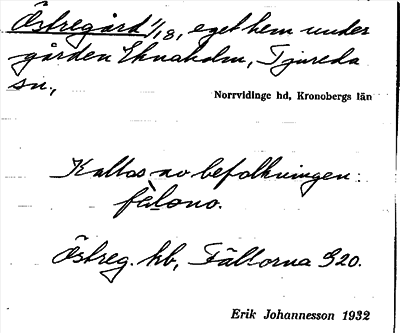 Östregård 1/18, eget hem under
gården Eknaholm, Tjureda
sn.,
Norrvidinge hd, Kronobergs län
Kallas av befolkningen:
Östreg. hb, Fällorna 920.
Erik Johannesson 1932